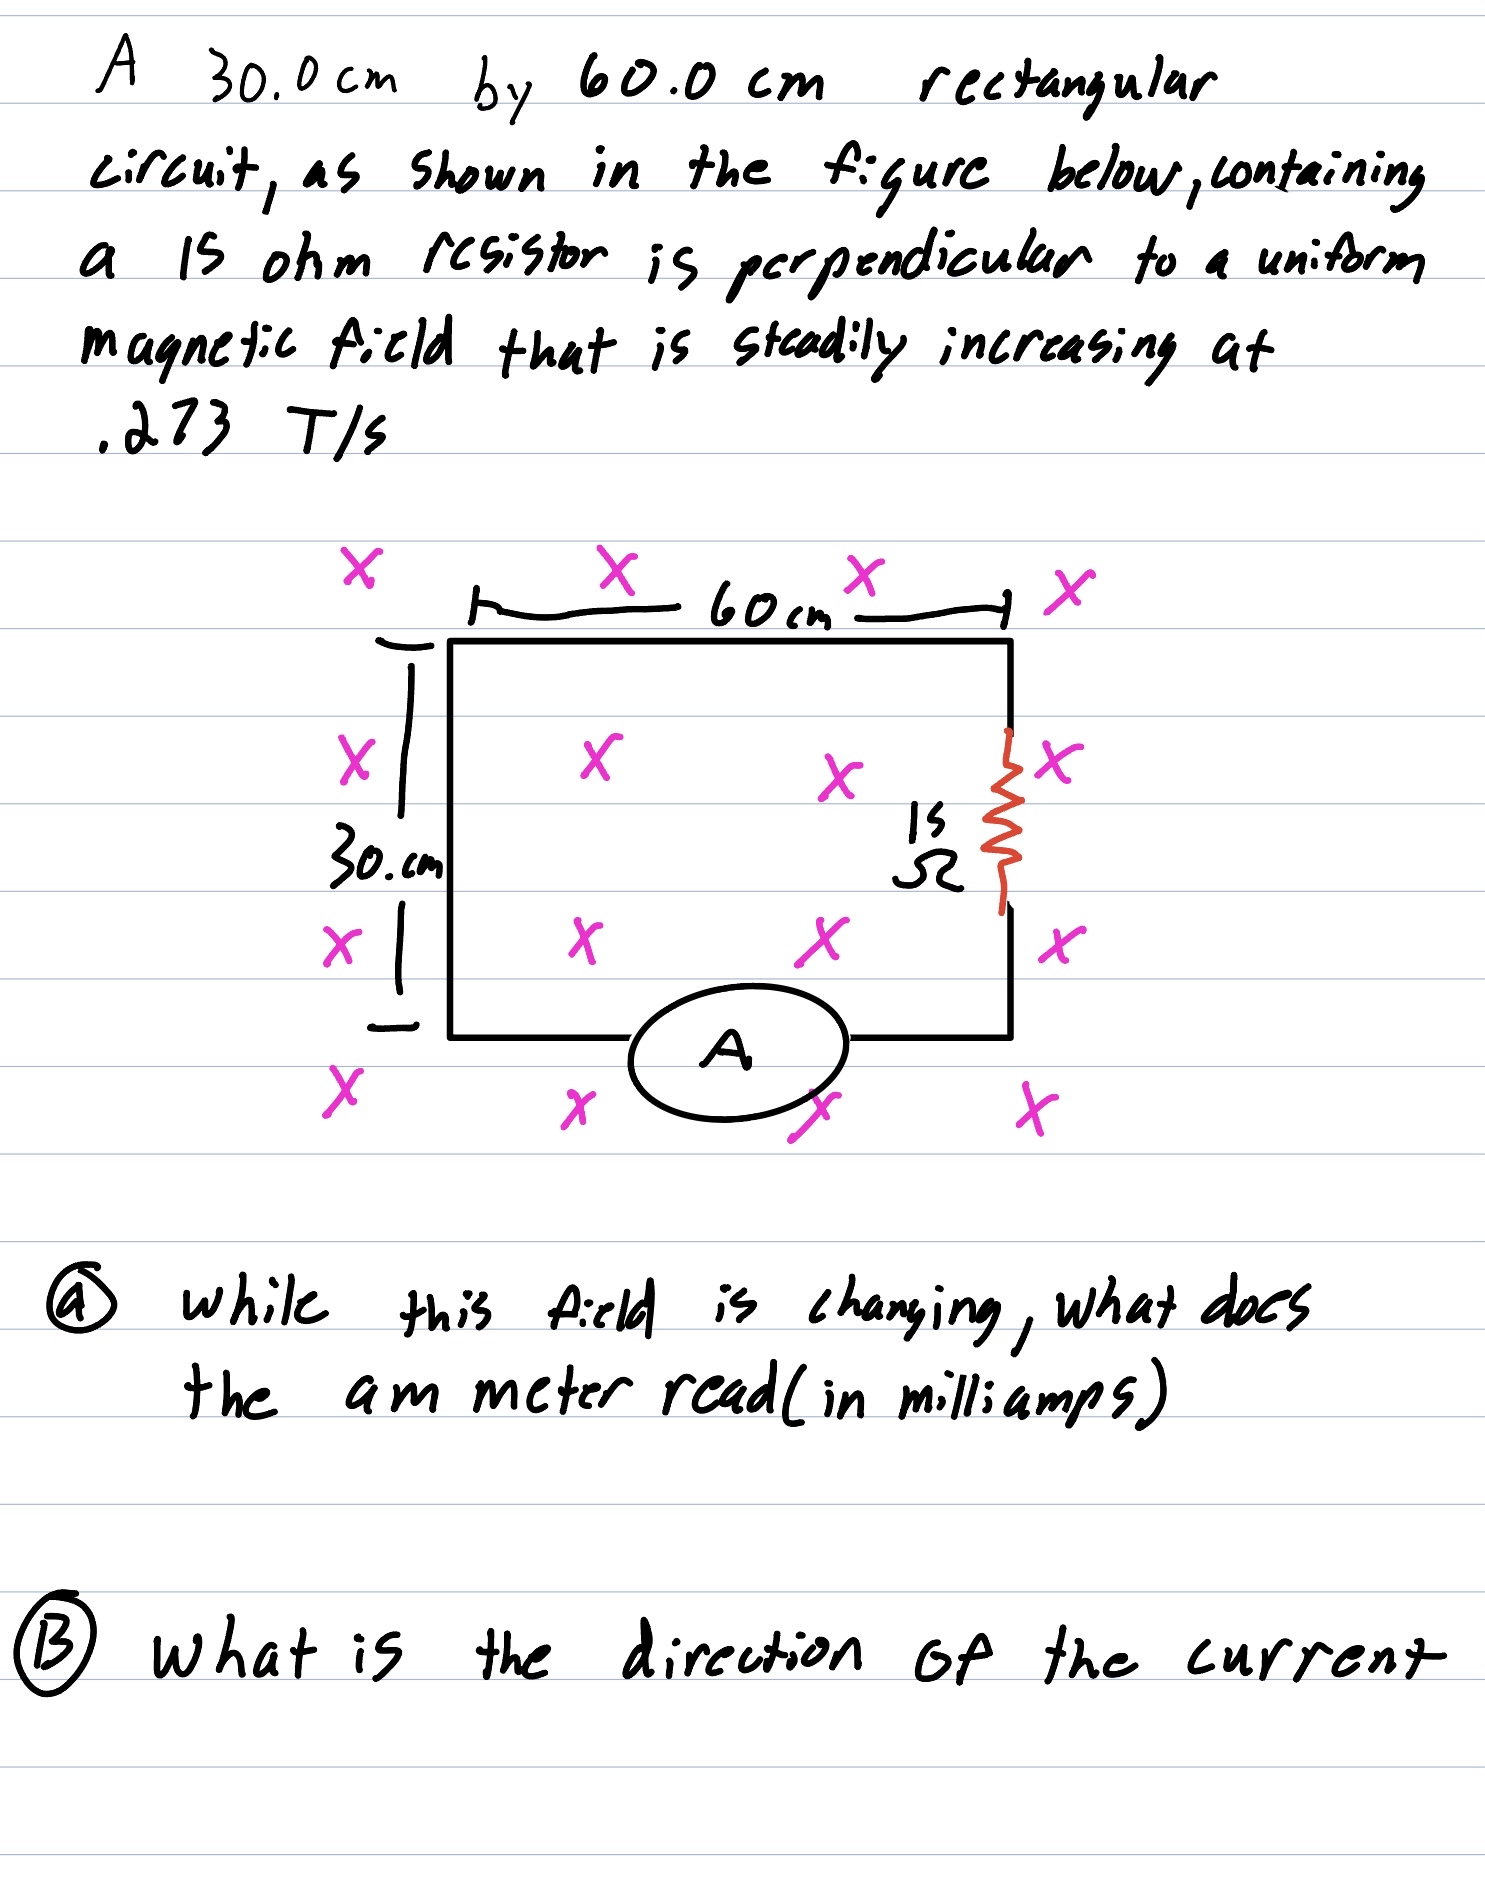 A 30.0 cm by 60.0 cm rectangular
circuit, as shown in the figure below, containing
a 15 ohm resistor is perpendicular to a uniform
magnetic field that is steadily increasing at
.273 T/s
X X X X
60 cm
X X X X
15
Ω
30. cm
X X X X
A
X X X X
ⓐ while this field is changing, what does
the am meter read (in milliamps)
Ⓑ what is the direction of the current